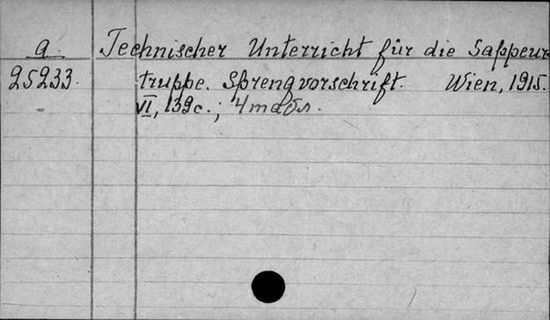 a. Technischer Unterricht für die Sappeur
25233. truppe. Sprengvorschrift. Wien, 1915.
VI, 139c.; 4